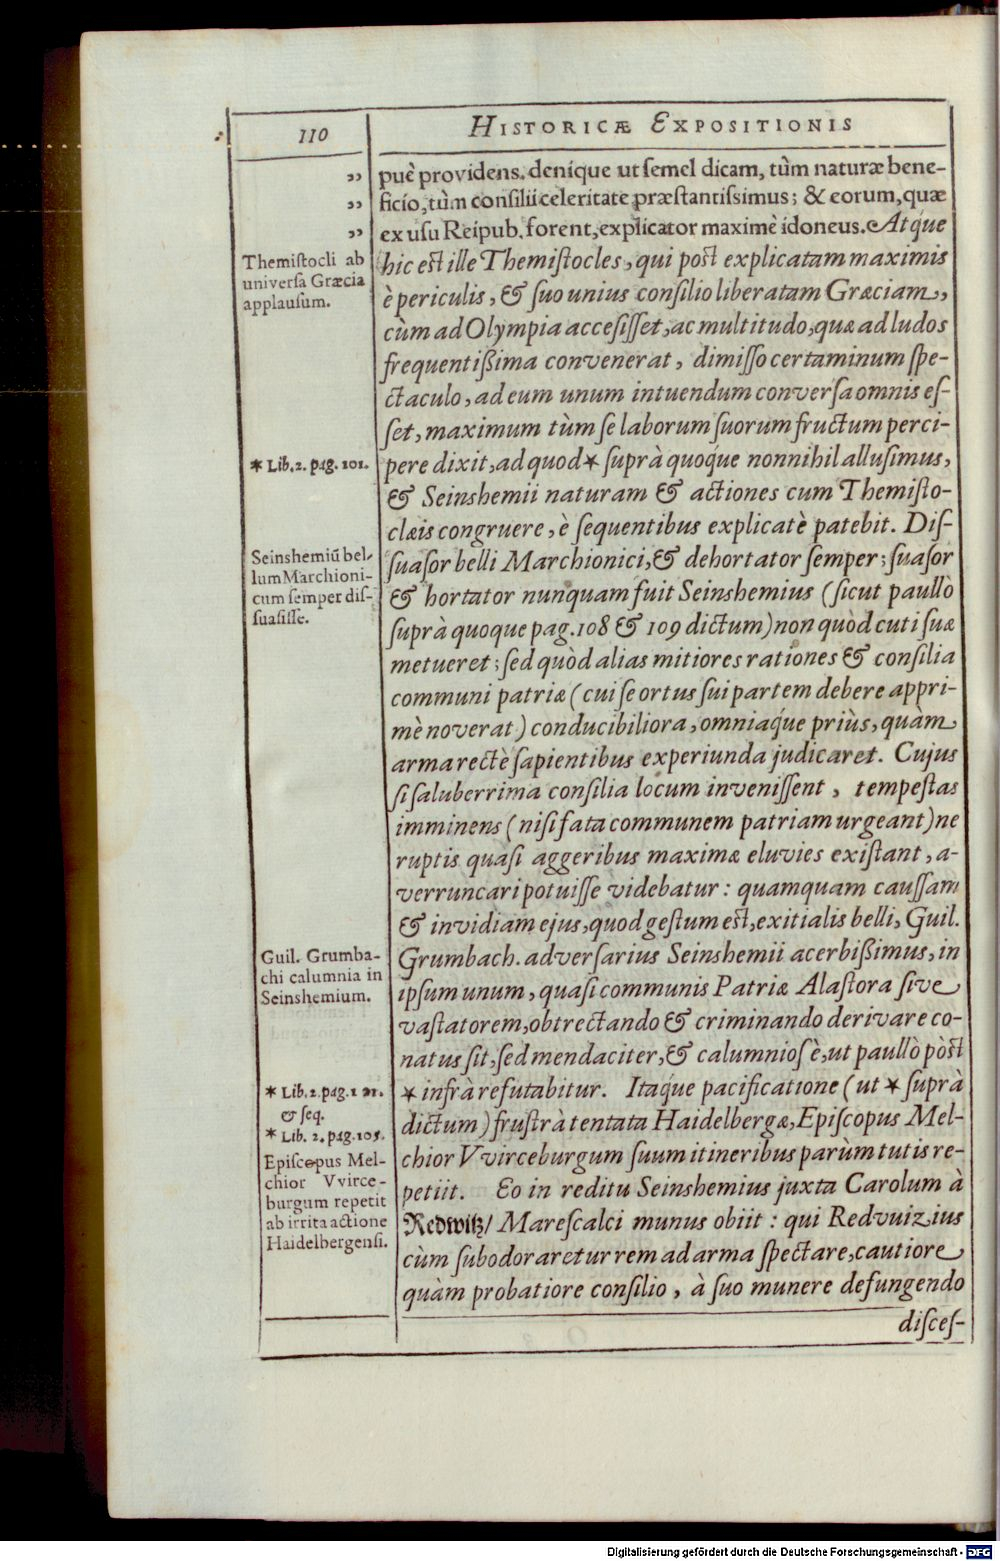 110
HISTORICÆ EXPOSITIONIS
„ puè providens. denique ut semel dicam, tùm naturæ bene-
„ ficio, tùm consilii celeritate præstantissimus; & eorum, quæ
„ ex usu Reipub. forent, explicator maximè idoneus. Atq́ue
Themistocli ab
universa Græcia
applausum.
hic est ille Themistocles, qui post explicatam maximis
è periculis, & suo unius consilio liberatam Græciam,
cùm ad Olympia accesisset, ac multitudo, quæ ad ludos
frequentißima convenerat, dimisso certaminum spe-
ctaculo, ad eum unum intuendum conversa omnis es-
set, maximum tùm se laborum suorum fructum perci-
* Lib. 2. pag. 101.
pere dixit, ad quod * suprà quoq́ue nonnihil allusimus,
& Seinshemii naturam & actiones cum Themisto-
clæis congruere, è sequentibus explicatè patebit. Dis-
Seinshemiũ bel-
lum Marchioni-
cum semper dis-
suasisse.
suasor belli Marchionici, & dehortator semper; suasor
& hortator nunquam fuit Seinshemius (sicut paullò
suprà quoque pag. 108 & 109 dictum) non quòd cuti suæ
metueret; sed quòd alias mitiores rationes & consilia
communi patriæ (cui se ortus sui partem debere appri-
mè noverat) conducibiliora, omniaq́ue priùs, quàm
arma rectè sapientibus experiunda judicaret. Cujus
si saluberrima consilia locum invenissent, tempestas
imminens (nisi fata communem patriam urgeant) ne
ruptis quasi aggeribus maximæ eluvies existant, a-
verruncari potuisse videbatur: quamquam caussam
& invidiam ejus, quod gestum est, exitialis belli, Guil.
Guil. Grumba-
chi calumnia in
Seinshemium.
Grumbach. adversarius Seinshemii acerbißimus, in
ipsum unum, quasi communis Patriæ Alastora sive
vastatorem, obtrectando & criminando derivare co-
natus sit, sed mendaciter, & calumniosè, ut paullò pòst
* Lib. 2. pag. 121.
& seq.
* Lib. 2. pag. 105.
* infrà refutabitur. Itaque pacificatione (ut * suprà
dictum) frustrà tentata Haidelbergæ, Episcopus Mel-
Episcopus Mel-
chior Vvirce-
burgum repetit
ab irrita actione
Haidelbergensi.
chior Vvirceburgum suum itineribus parùm tutis re-
petiit. Eo in reditu Seinshemius juxta Carolum à
Redwitz/ Marescalci munus obiit: qui Redvuizius
cùm subodoraretur rem ad arma spectare, cautiore
quàm probatiore consilio, à suo munere defungendo
disces-
Digitalisierung gefördert durch die Deutsche Forschungsgemeinschaft - DFG